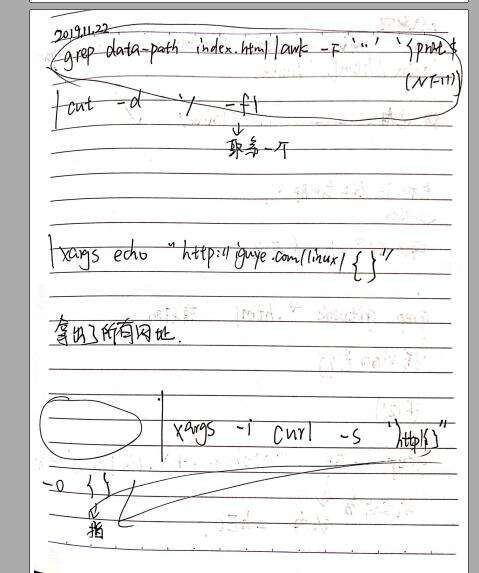 2019.11.22
grep data-path index.html | awk -F '"' '{print $
(NF-1)}
| cut -d '/' -f1
取第一个
| xargs echo "http://iguye.com/linux/{}"
拿出了所有网址.
| xargs -i curl -s "http/{}"
-o {}
指